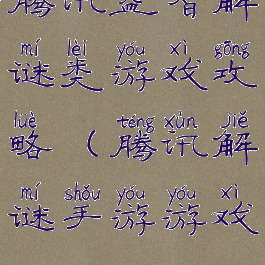 腾讯益智解
mí lèi yóu xì gōng
谜类游戏攻
lüè téng xùn jiě
略（腾讯解
mí shǒu yóu yóu xì
谜手游游戏